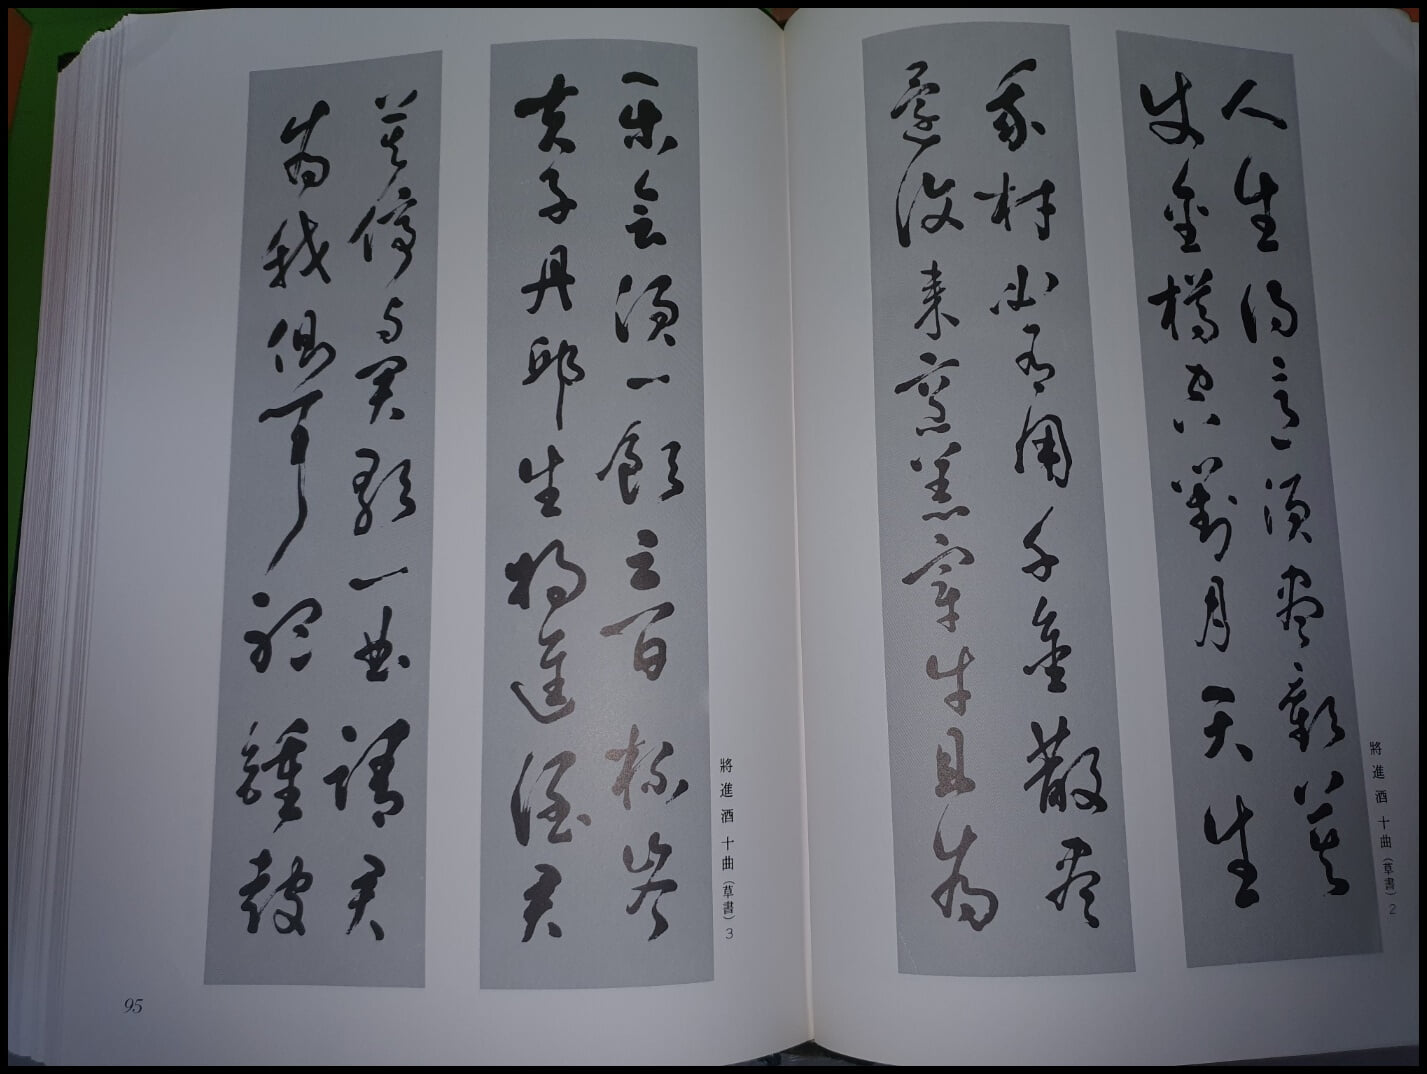 人生得意須盡歡莫
使金樽空對月天生
我材必有用千金散盡
還復來烹羔宰牛且為
將進酒 十曲(草書) 2
樂會須一飲三百杯岑
夫子丹邱生將進酒君
莫停與君歌一曲請君
為我側耳聽鐘鼓
將進酒 十曲(草書) 3
95